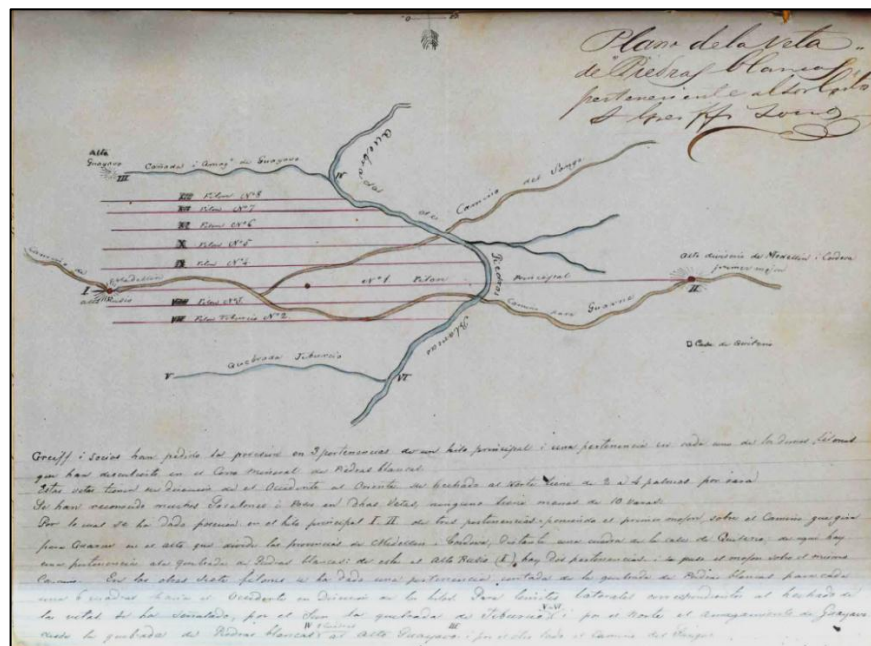 Plano de la Veta
de "Piedras blancas"
perteneciente al Sor
Greiff Socios
Alto
Guayavo
III
Cañada i Amag.º de Guayavo
IV
Quebrada
de
Piedras
Blancas
Camino del Ponge
XIII Filon Nº 8
XII Filon Nº 7
XI Filon Nº 6
X Filon Nº 5
IX Filon Nº 4
Camino de Medellin
I
Alto Rubio
Nº 1 Filon Principal
Alto division de Medellin i Cordova
primer mojon
II
VIII Filon Nº 3
VII Filon Tiburcio Nº 2
Camino para Guarne
Casa de
V
Quebrada Tiburcio
VI
Greiff i socios han pedido la posesion en 3 pertenencias de un hilo principal i una pertenencia en cada uno de los demas filones
que han descubierto en el Cerro mineral de Piedras blancas.
Estas vetas tienen su direccion de el Occidente al Oriente su hechado al Norte tiene de 2 a 4 palmos por
Se han reconocido muchos Socabones i en dhas Vetas, ninguna tiene menos de 10 varas.
Por lo cual se ha dado posesion en el hilo principal I. II. de tres pertenencias poniendo el primer mojon sobre el Camino que gira
para Guarne en el alto que divide las provincias de Medellin i Cordova, distante una cuadra de la casa de de aqui hay
una pertenencia a la quebrada de Piedras blancas; de este al Alto Rubio (I.) hay dos pertenencias; i se puso el mojon sobre el mismo
Camino. En los otros siete filones se ha dado una pertenencia contada de la quebrada de Piedras blancas para cada
uno 6 cuadras hacia el Occidente en direccion de los hilos. Por limites laterales correspondiente al hechado de
las vetas se ha señalado, por el Sur la quebrada de Tiburcio i por el Norte el Amagamiento de Guayavo
desde la quebrada de Piedras blancas al Alto Guayavo; i por el otro lado el Camino del Ponge.